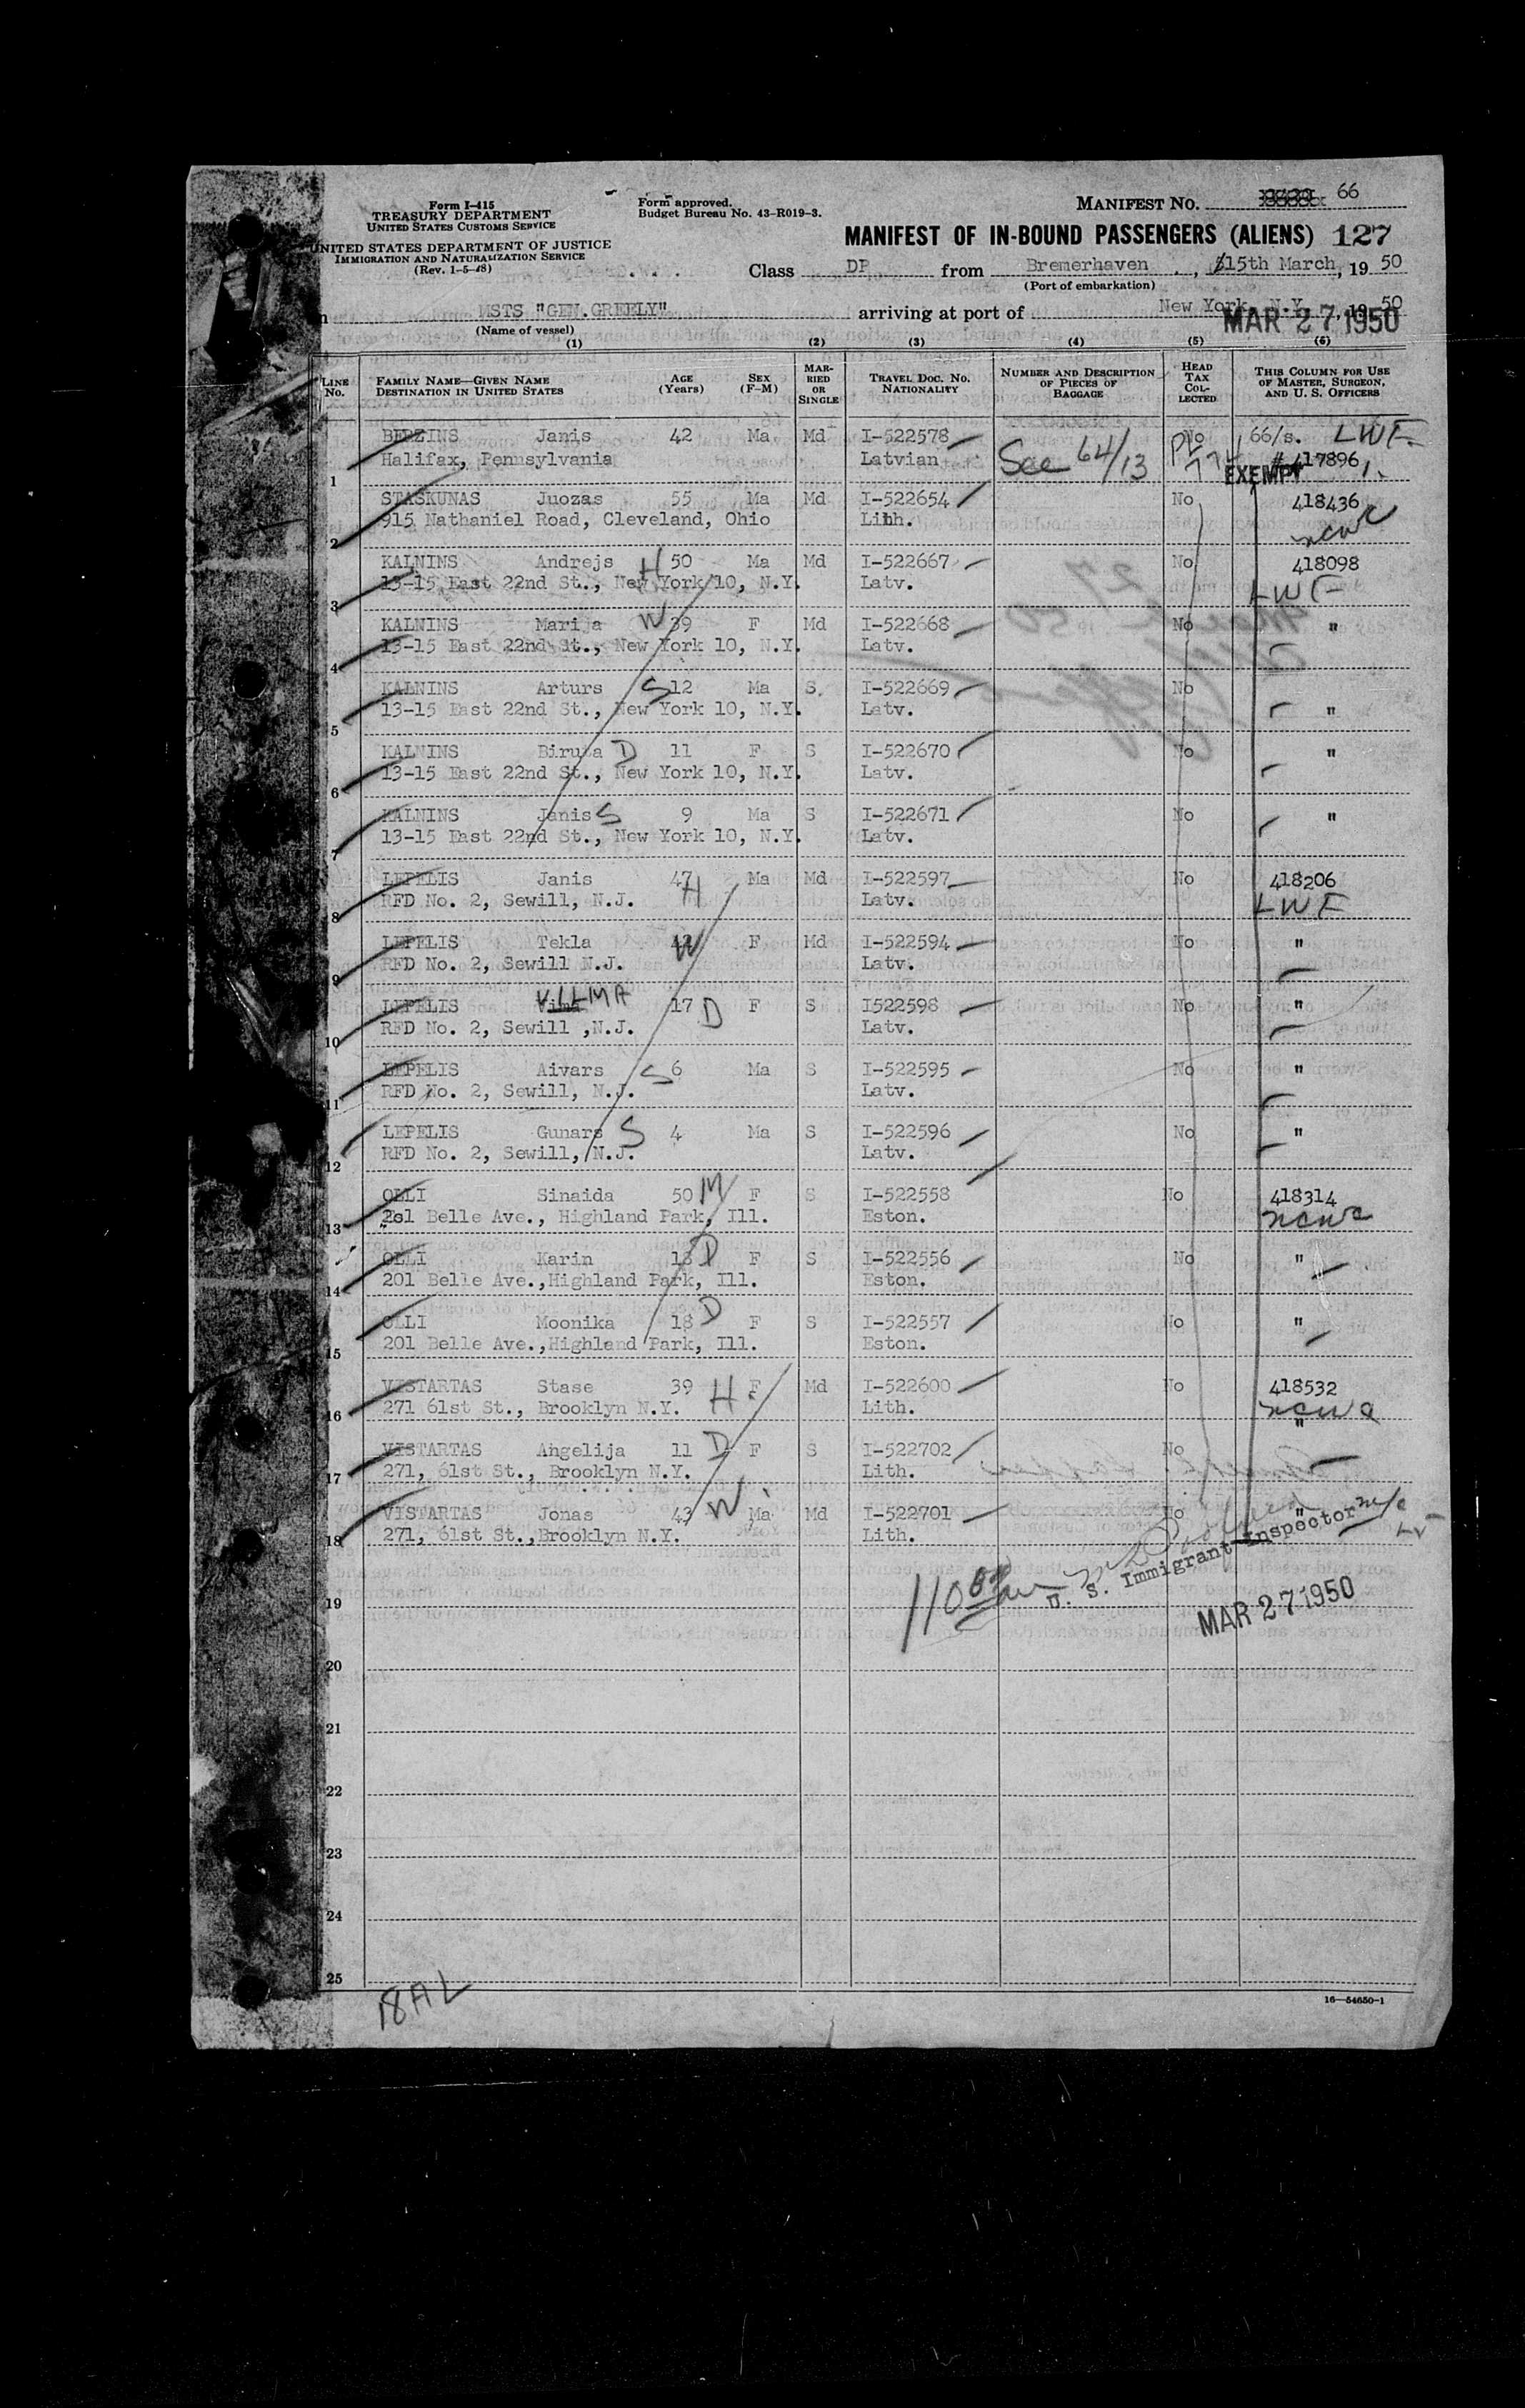 Form I-415
TREASURY DEPARTMENT
UNITED STATES CUSTOMS SERVICE
UNITED STATES DEPARTMENT OF JUSTICE
IMMIGRATION AND NATURALIZATION SERVICE
(Rev. 1-5-48)
Form approved.
Budget Bureau No. 43-R019-3.
MANIFEST NO. 66
MANIFEST OF IN-BOUND PASSENGERS (ALIENS) 127
Class DP from Bremerhaven, 15th March, 19 50
(Port of embarkation)
MSTS "GEN.GREELY" arriving at port of New York, N.Y., 19 50
(Name of vessel)
MAR 27 1950
(1) (2) (3) (4) (5) (6)
LINE NO. FAMILY NAME—GIVEN NAME DESTINATION IN UNITED STATES AGE (Years) SEX (F-M) MARRIED OR SINGLE TRAVEL DOC. NO. NATIONALITY NUMBER AND DESCRIPTION OF PIECES OF BAGGAGE HEAD TAX COLLECTED THIS COLUMN FOR USE OF MASTER, SURGEON, AND U. S. OFFICERS
BERZINS Janis 42 Ma Md I-522578 See 64/13 No 66/s. LWF
1 Halifax, Pennsylvania Latvian EXEMPT # 417896
STASKUNAS Juozas 55 Ma Md I-522654 No 418436
2 915 Nathaniel Road, Cleveland, Ohio Lith. ncwc
KALNINS Andrejs H 50 Ma Md I-522667 No 418098
3 13-15 East 22nd St., New York 10, N.Y. Latv. LWF
KALNINS Marija W 39 F Md I-522668 No "
4 13-15 East 22nd St., New York 10, N.Y. Latv.
KALNINS Arturs S 12 Ma S. I-522669 No
5 13-15 East 22nd St., New York 10, N.Y. Latv. "
KALNINS Biruta D 11 F S I-522670 No "
6 13-15 East 22nd St., New York 10, N.Y. Latv.
KALNINS Janis S 9 Ma S I-522671 No "
7 13-15 East 22nd St., New York 10, N.Y. Latv.
LEPELIS Janis 47 H Ma Md I-522597 No 418206
8 RFD No. 2, Sewill, N.J. Latv. LWF
LEPELIS Tekla W F Md I-522594 No "
9 RFD No. 2, Sewill N.J. Latv.
LEPELIS VILMA 17 D F S I522598 No "
10 RFD No. 2, Sewill ,N.J. Latv.
LEPELIS Aivars S 6 Ma S I-522595 No "
11 RFD No. 2, Sewill, N.J. Latv.
LEPELIS Gunars S 4 Ma S I-522596 No "
12 RFD No. 2, Sewill, N.J. Latv.
OLLI Sinaida 50 M F S I-522558 No 418314
13 201 Belle Ave., Highland Park, Ill. Eston. ncwc
OLLI Karin D F S I-522556 No "
14 201 Belle Ave.,Highland Park, Ill. Eston.
OLLI Moonika 18 D F S I-522557 No "
15 201 Belle Ave.,Highland Park, Ill. Eston.
VISTARTAS Stase 39 H F Md I-522600 No 418532
16 271 61st St., Brooklyn N.Y. Lith. ncwc
VISTARTAS Angelija 11 D F S I-522702 No "
17 271, 61st St., Brooklyn N.Y. Lith.
VISTARTAS Jonas 43 W Ma Md I-522701 No "
18 271, 61st St.,Brooklyn N.Y. Lith.
U. S. Immigrant Inspector
19 MAR 27 1950
20
21
22
23
24
25
18AL
16—54650-1